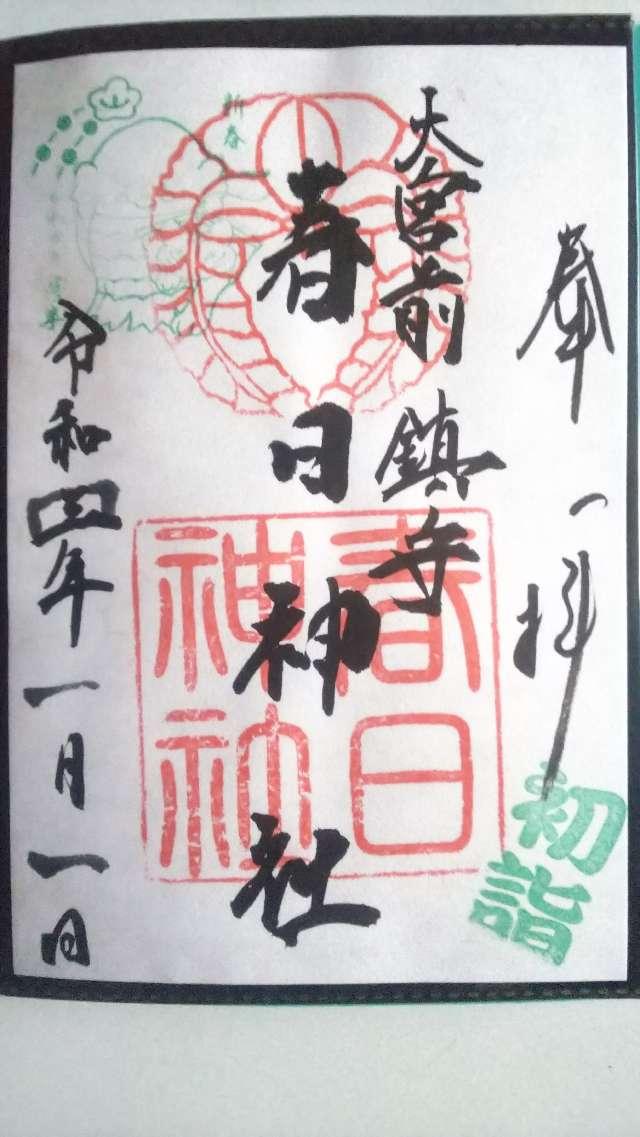 奉拝
大宮前鎮守
春日神社
令和四年一月一日
春日神社
初詣
新春